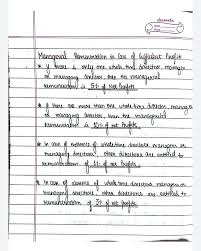 Managerial Remuneration in case of Sufficient Profit
* if there is only one whole time director, manager
or managing director then the managerial
remuneration is 5% of net profits.
* if there are more than one whole time director, manager
or managing director, then the managerial
remuneration is 10% of net profits.
* In case of existence of whole time director, manager or
managing director, other directors are entitled to
remuneration of 1% of net profits.
* In case of absence of whole time director, manager or
managing director, other directors are entitled to
remuneration of 3% of net profits.